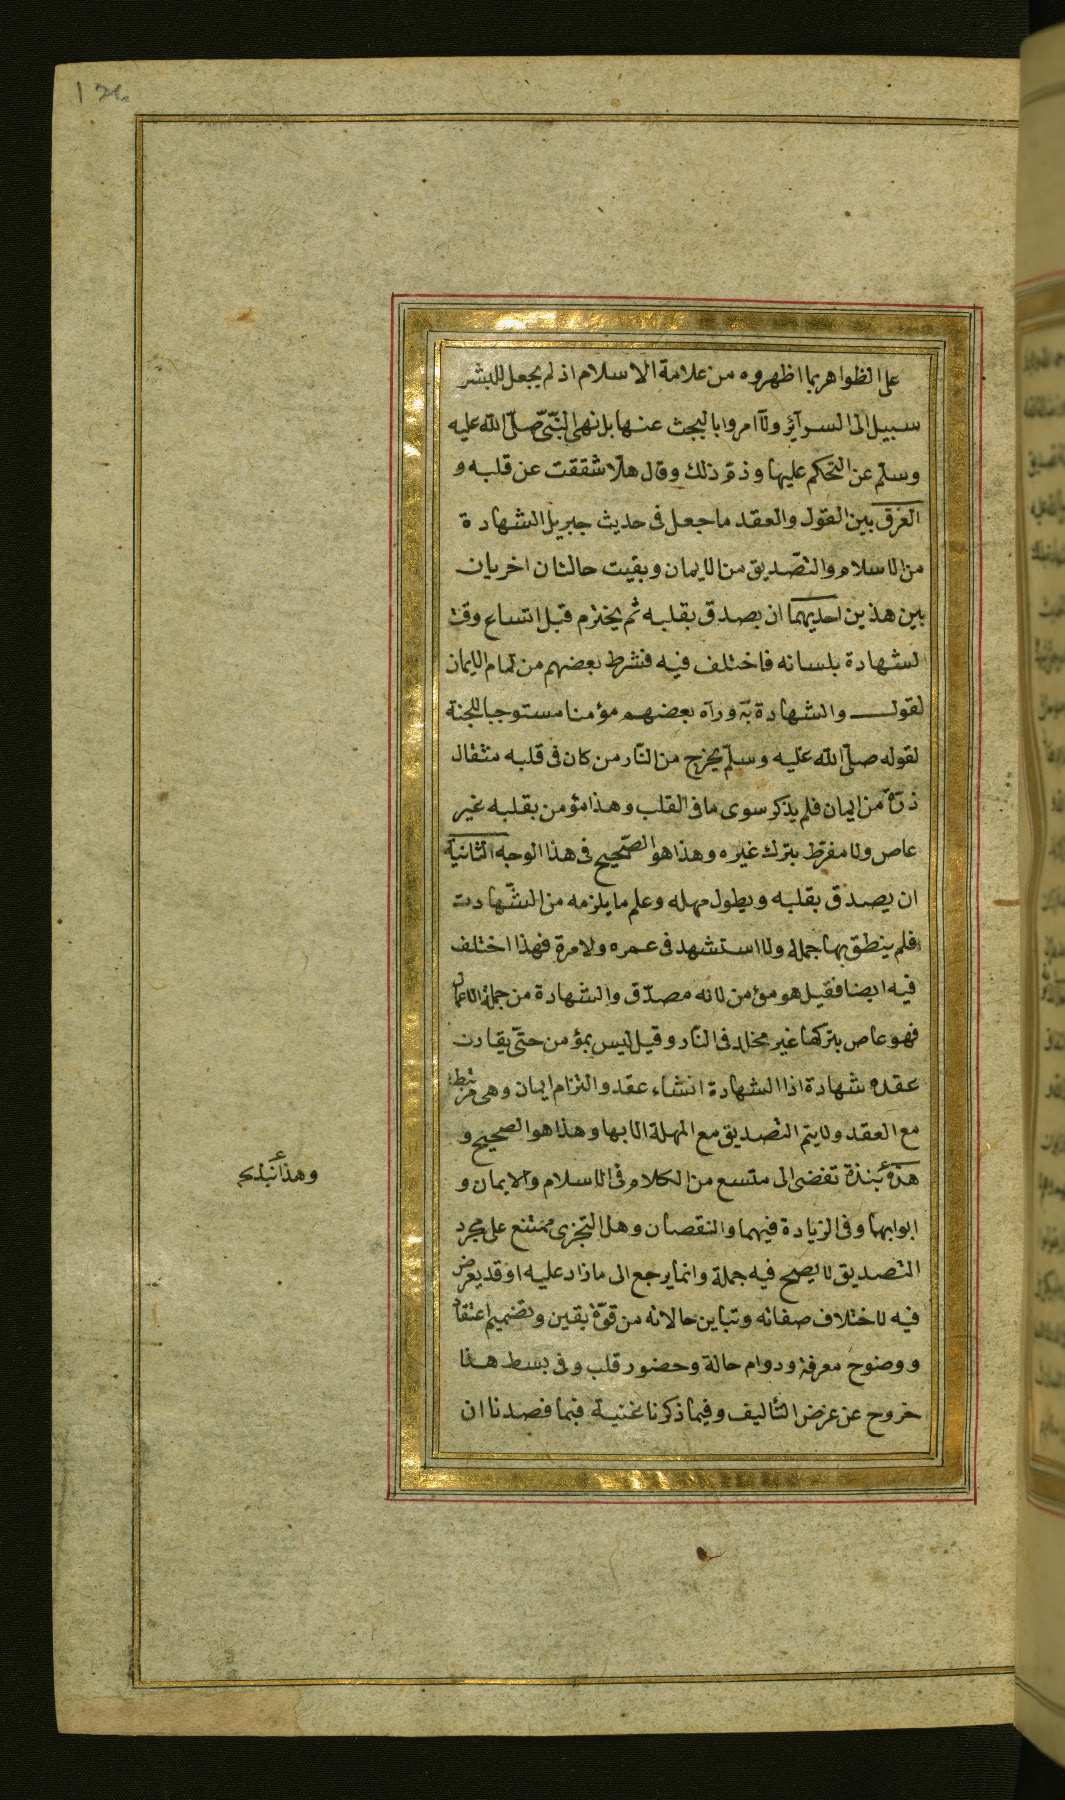 على الظواهر بما اظهروه من علامة الاسلام اذ لم يجعل للبشر
سبيل الى السرآئر ولا امروا بالبحث عنها بل نهى النبّى صلّى الله عليه
وسلّم عن التحكم عليها وذمّ ذلك وقال هلّا شققت عن قلبه و
الفرق بين القول والعقد ما جعل فى حديث جبريل الشهادة
من الاسلام والتصّديق من الايمان وبقيت حالتان اخريان
بين هذين احديهما ان يصدق بقلبه ثم يخترم قبل اتساع وقت
لشهادة بلسانه فاختلف فيه فشرط بعضهم من تمام الايمان
لقول والشهادة به ورآه بعضهم مؤمنا مستوجبا للجنة
لقوله صلّى الله عليه وسلّم يخرج من النّار من كان فى قلبه مثقال
ذرّة من ايمان فلم يذكر سوى ما فى القلب وهذا مؤمن بقلبه غير
عاص ولا مفرّط بترك غيره وهذا هو الصّحيح فى هذا الوجه الثانية
ان يصدق بقلبه ويطول مهله وعلم ما يلزمه من الشّهادت
فلم ينطق بها جملة ولا استشهد فى عمره ولا مرة فهذا اختلف
فيه ايضا فقيل هو مؤمن لانه مصدّق والشهادة من جملة الاعمال
فهو عاص بتركها غير مخلد فى النّار وقيل ليس بمؤمن حتّى يقارن
عقده شهادة اذا الشهادة انشاء عقد والتزام ايمان وهى مرتبطة
مع العقد ولا يتم التصديق مع المهلة الا بها وهذا هو الصحيح و
هذه نبذة تفضى الى متسع من الكلام فى الاسلام والايمان و
وهذا نبذ
ابوابها وفى الزيادة فيهما والنقصان وهل التجزى ممتنع على مجرد
التصديق لا يصح فيه جملة وانما يرجع الى ما زاد عليه او قد يعرض
فيه لاختلاف صفاته وتباين حالاته من قوّة يقين وتصميم اعتقاد
ووضوح معرفة ودوام حالة وحضور قلب وفى بسط هذا
خروج عن غرض التأليف وفيما ذكرنا غنية فيما قصدنا ان